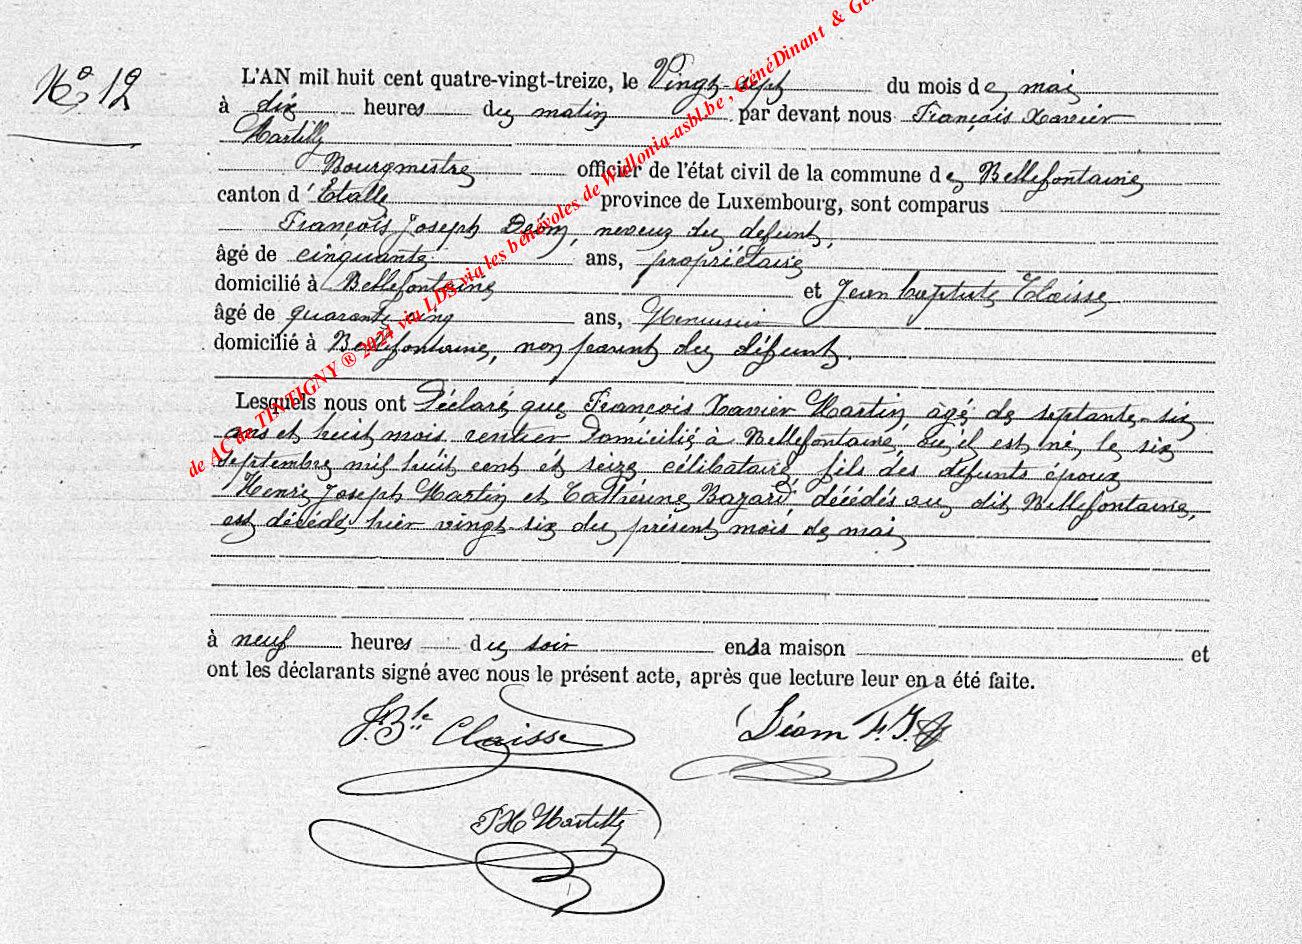 No 12
L'AN mil huit cent quatre-vingt-treize, le Vingt-sept du mois de mai
à dix heures du matin par devant nous François Xavier
Martilly
Bourgmestre officier de l'état civil de la commune de Bellefontaine
canton d'Etalle province de Luxembourg, sont comparus
François Joseph Déom, neveux du defunt,
âgé de cinquante ans, propriétaire
domicilié à Bellefontaine et Jean baptiste Claisse
âgé de quarante cinq ans, Menuisier
domicilié à Bellefontaine, non parent du défunt.
Lesquels nous ont Déclaré que François Xavier Martin, âgé de septante-six
ans et huit mois rentier Domicilié à Bellefontaine, où il est né le six
septembre mil huit cent et seize célibataire, fils des défunts époux
Henri Joseph Martin et Cathérine Bazard, décédés au dit Bellefontaine,
est décédé hier vingt-six du présent mois de mai
à neuf heures du soir en sa maison et
ont les déclarants signé avec nous le présent acte, après que lecture leur en a été faite.
J. Bte Claisse Déom F. J.
FX Martilly
de AC de TINTIGNY ® 2024 via LDS via les bénévoles de Wallonia-asbl.be, GénéDinant &